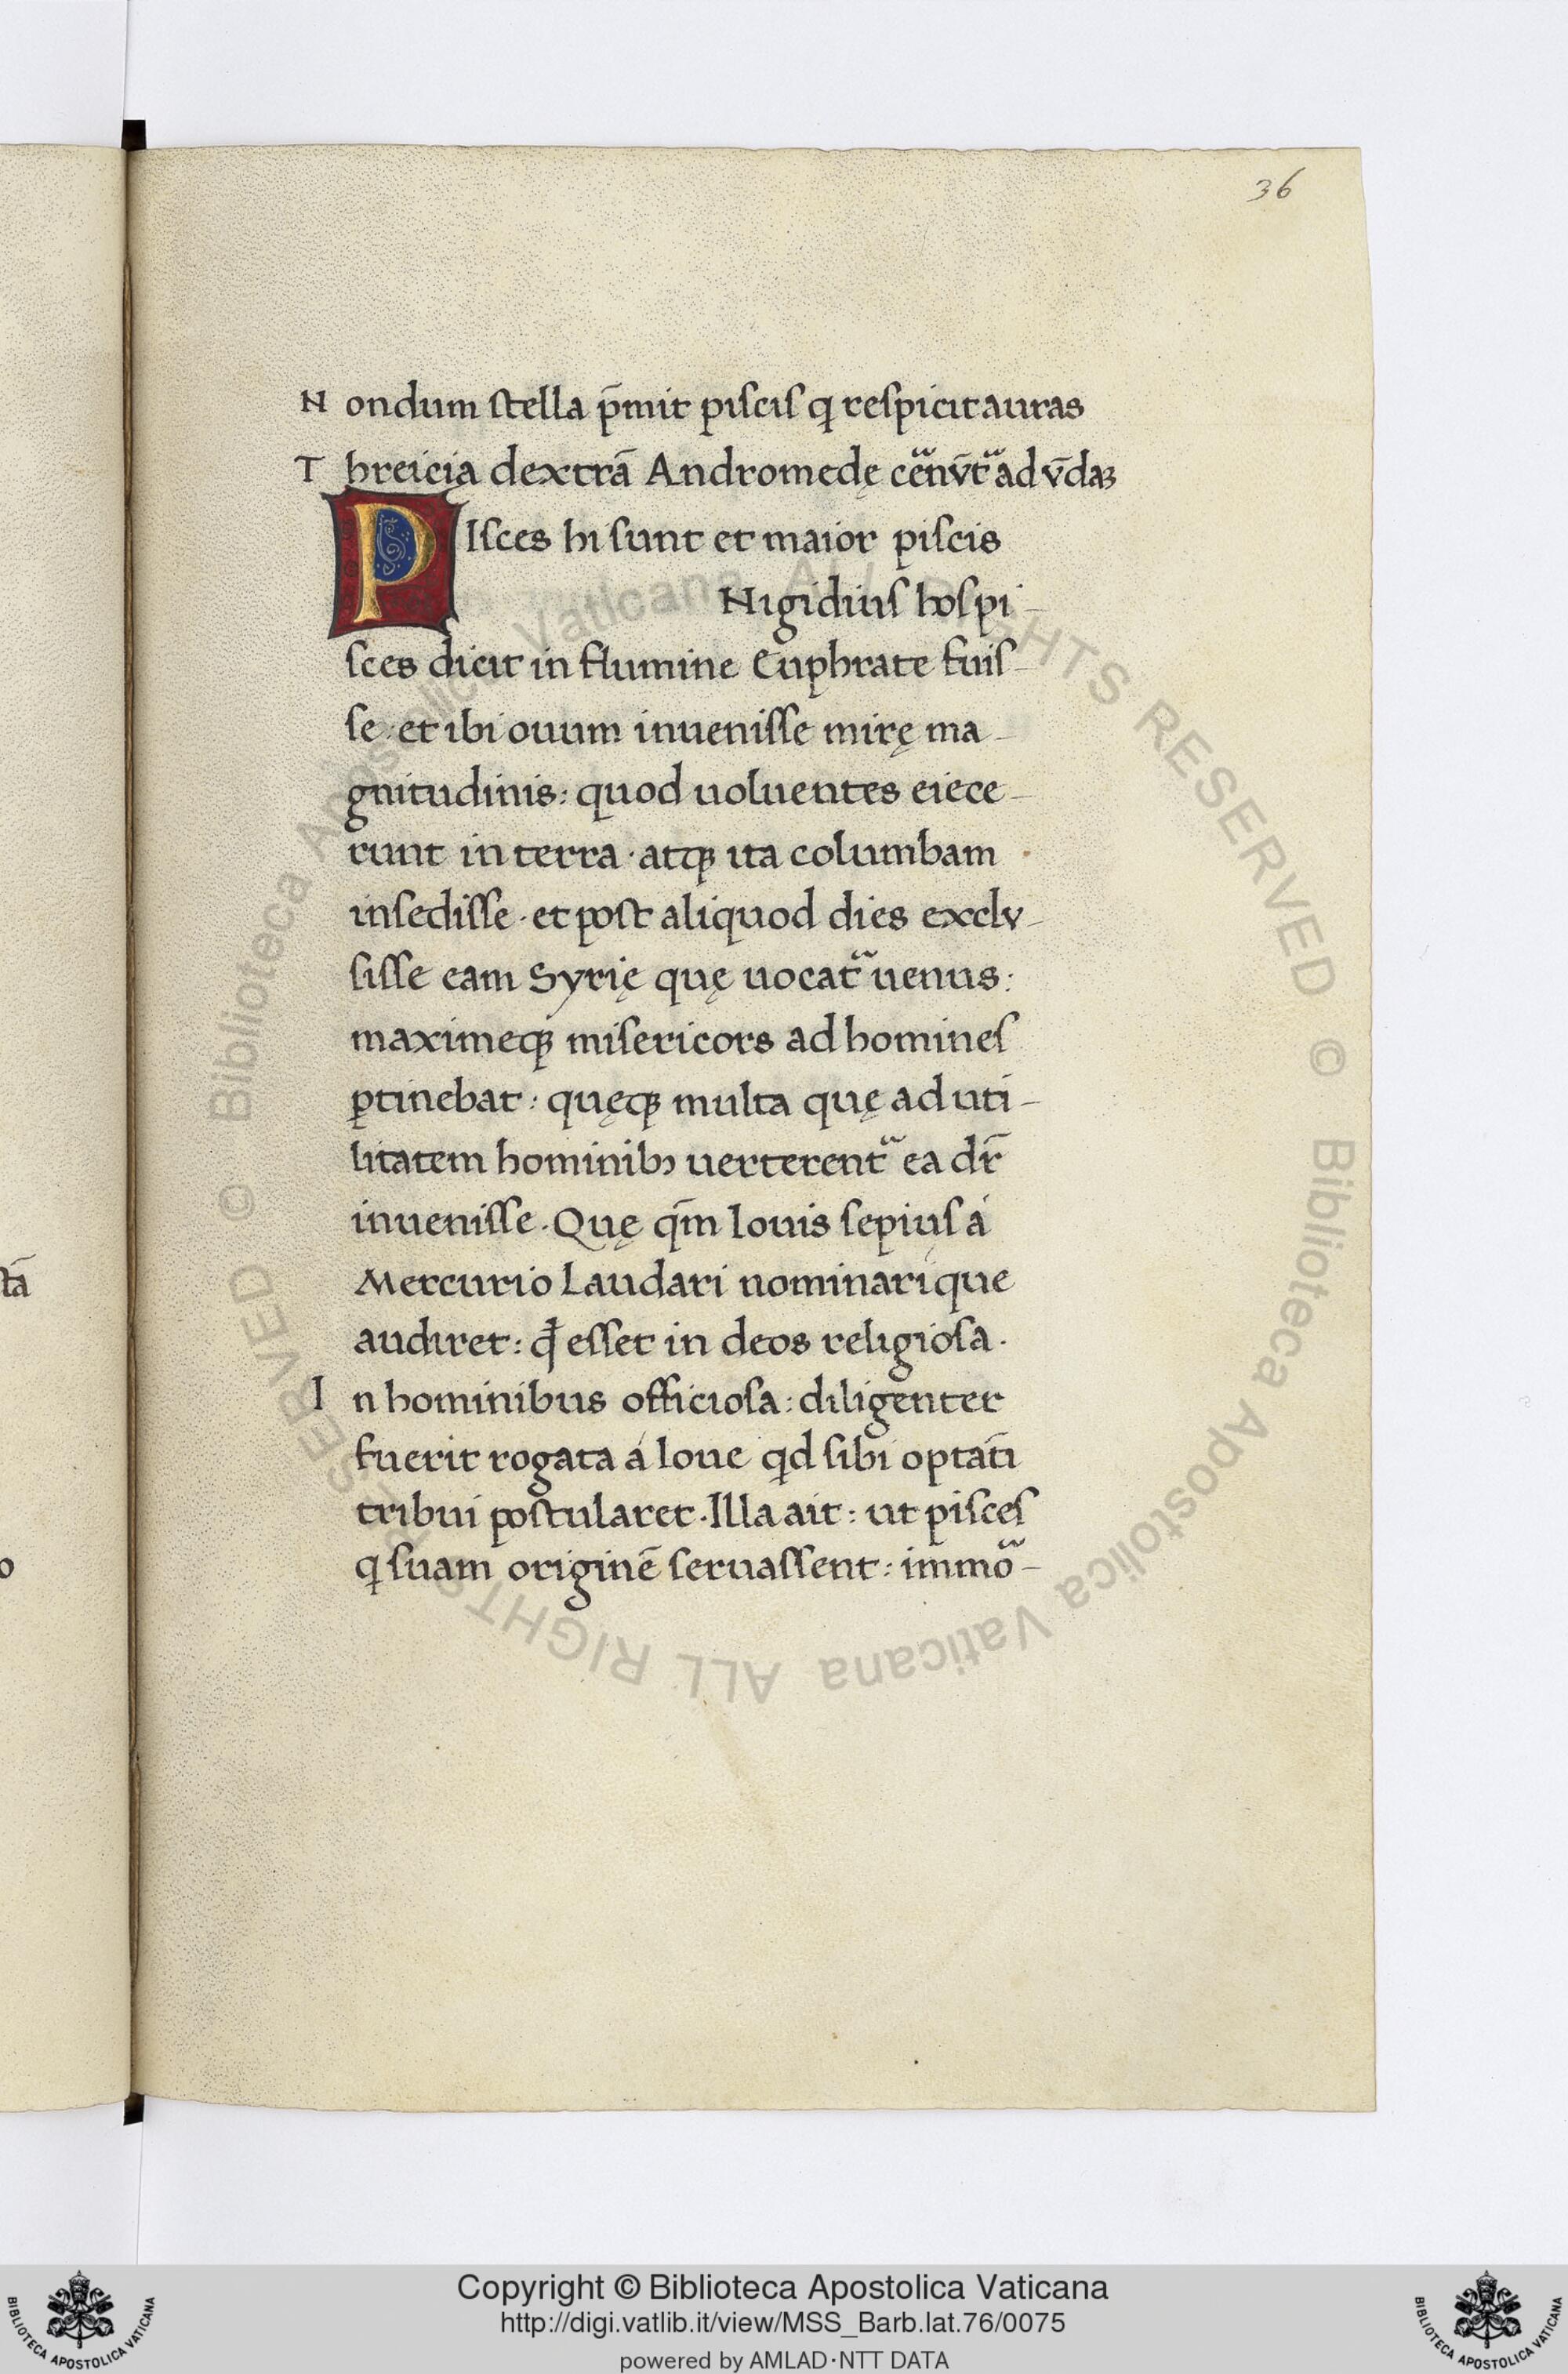 36
N ondum stella p̄mit piscis q respicit auras
T hreicia dextrā Andromedę cernv̄t ad v̄das
PIsces hi sunt et maior piscis
Nigidius hos pi-
sces dicit in flumine Euphrate fuis-
se: et ibi ouum inuenisse mirę ma-
gnitudinis: quod uoluentes eiece-
runt in terra · atqꝫ ita columbam
insedisse · et post aliquod dies exclv-
sisse eam Syrię quę uocat᷑ uenus:
maximeqꝫ misericors ad homines
ꝑtinebat: quęqꝫ multa quę ad uti-
litatem hominibꝫ uerterent᷑ ea dr̄
inuenisse · Quę qm̄ Iouis sepius á
Mercurio Laudari nominarique
audiret: qđ esset in deos religiosa ·
I n hominibus officiosa: diligenter
fuerit rogata á Ioue qd sibi optati
tribui postularet · Illa ait: ut pisces
q suam originē seruassent: immo᷑-
tā
o
© Biblioteca Apostolica Vaticana ALL RIGHTS RESERVED © Biblioteca Apostolica Vaticana ALL RIGHTS RESERVED
Copyright © Biblioteca Apostolica Vaticana
http://digi.vatlib.it/view/MSS_Barb.lat.76/0075
powered by AMLAD·NTT DATA
BIBLIOTECA APOSTOLICA VATICANA
BIBLIOTECA APOSTOLICA VATICANA